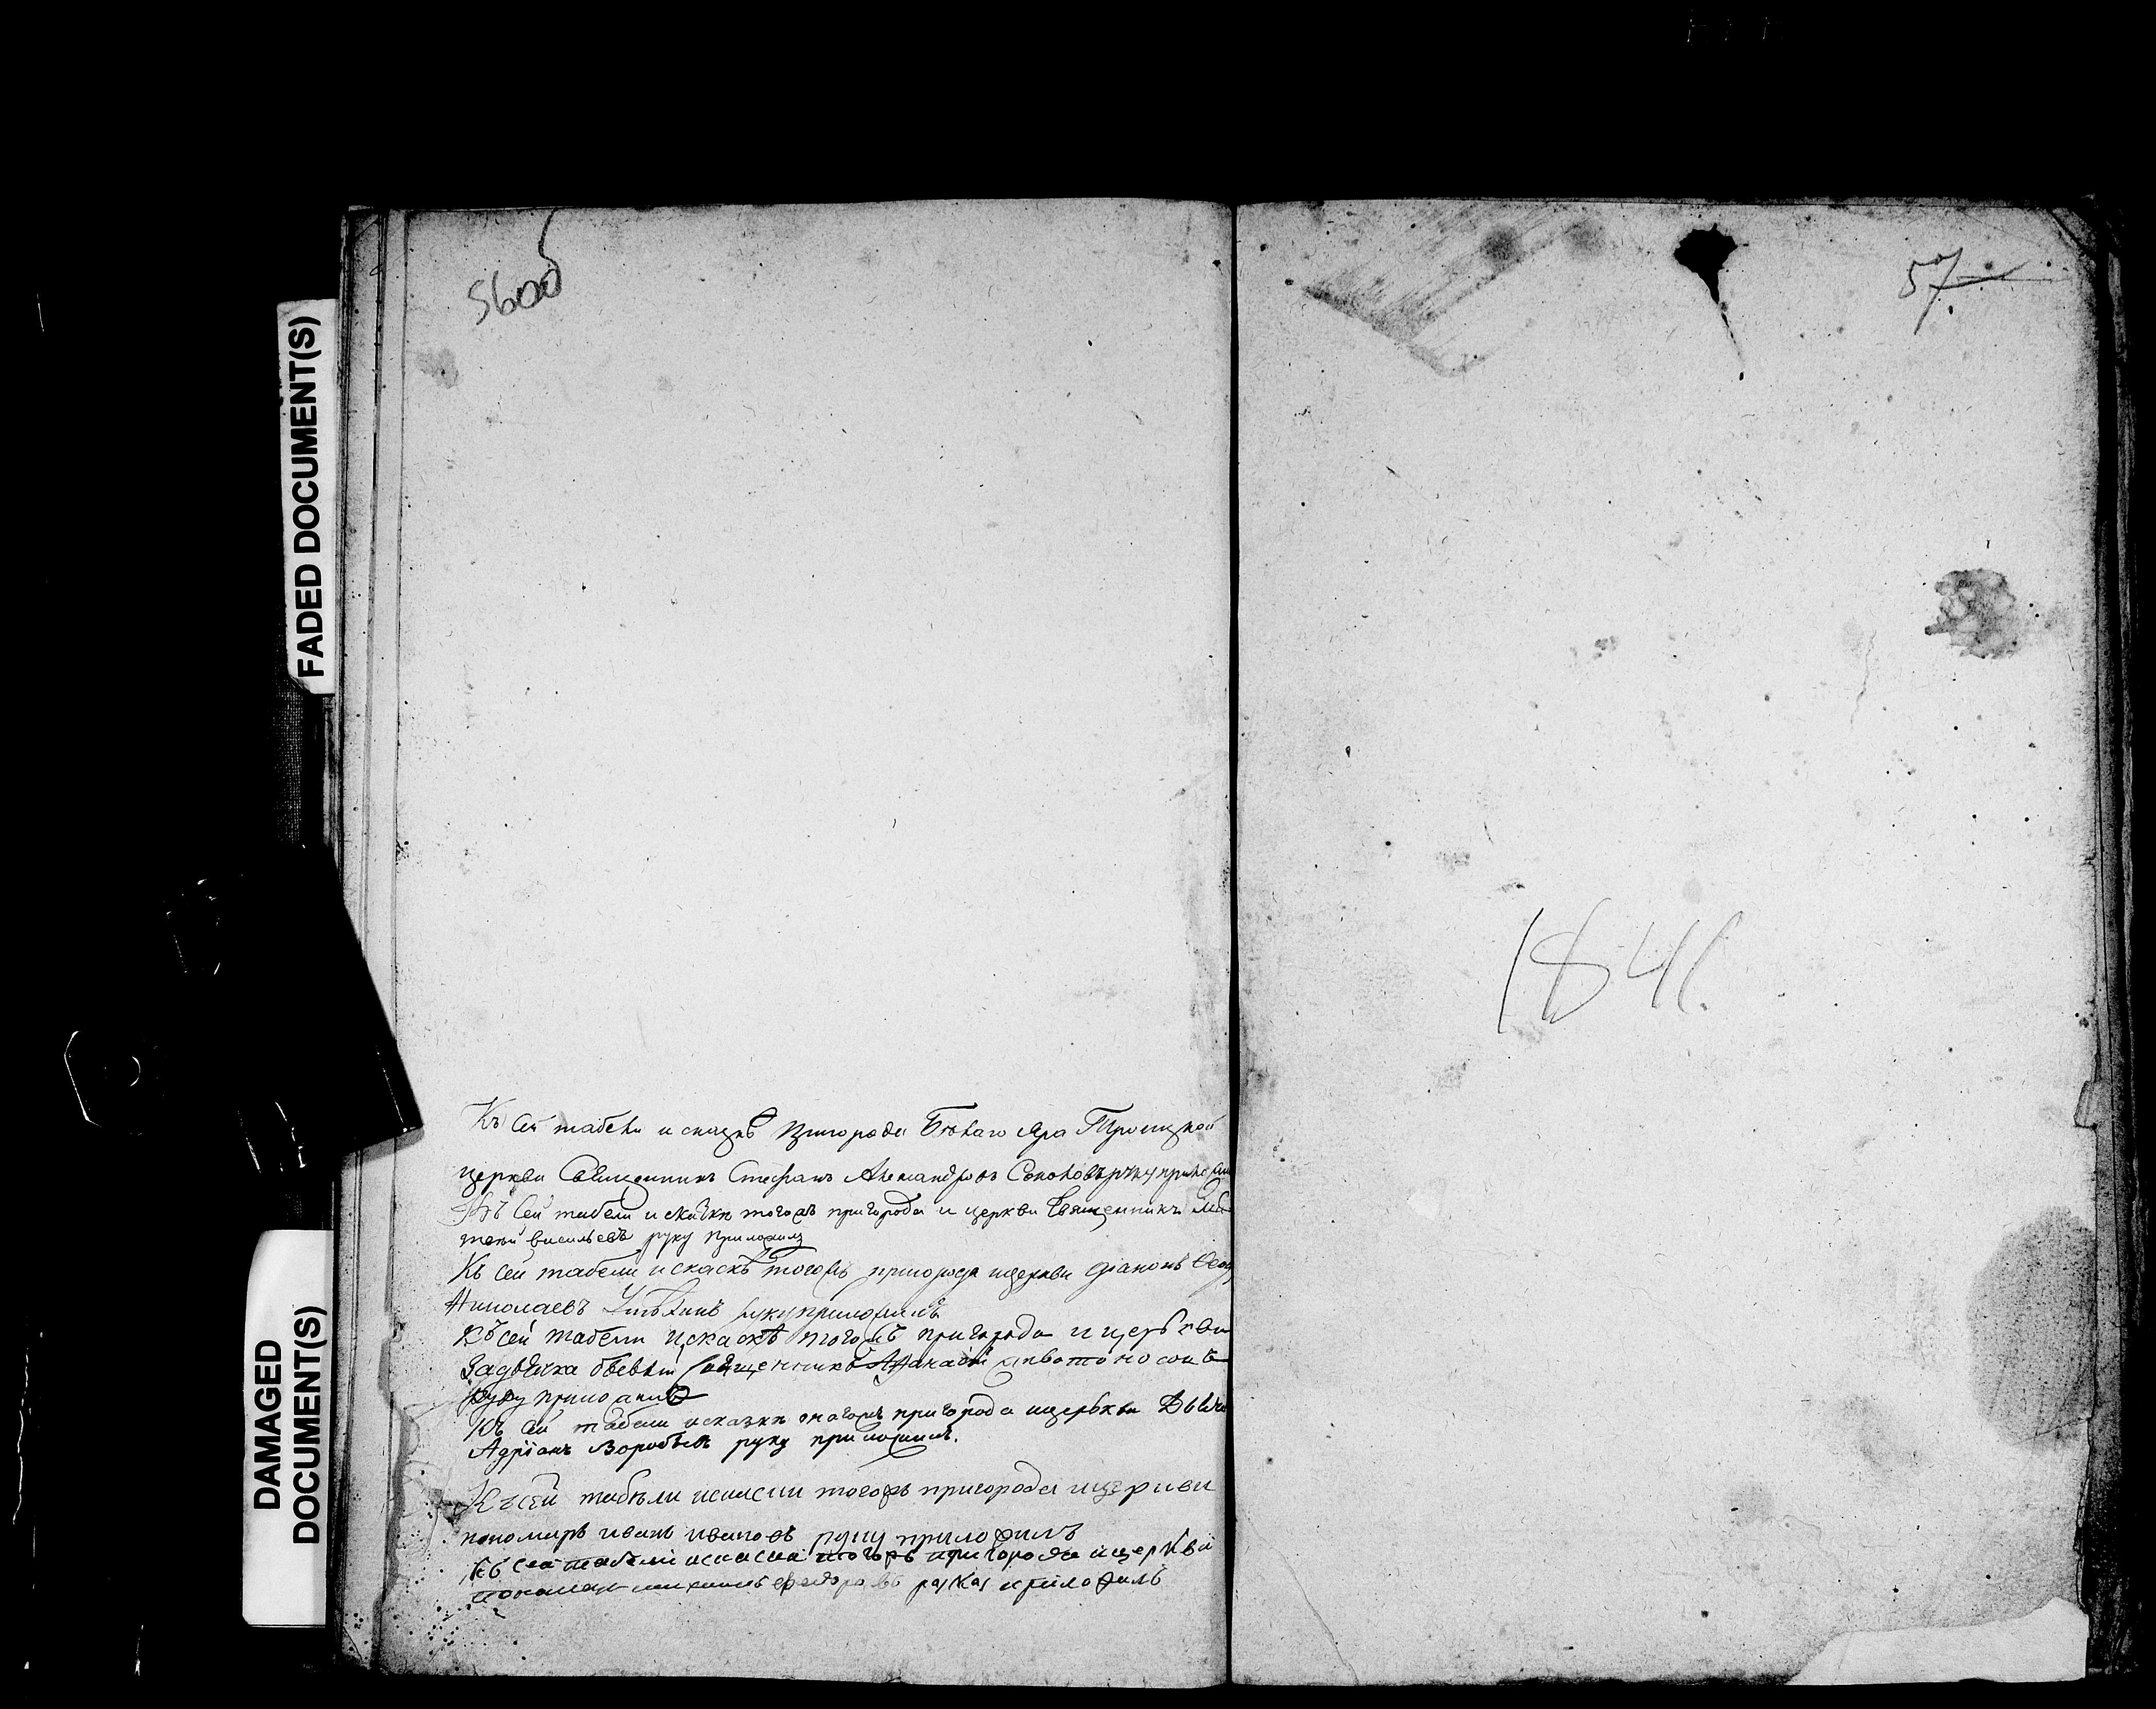 560об
57
FADED DOCUMENT(S)
DAMAGED
DOCUMENT(S)
1841
Къ сей табели и сказкѣ пригорода Бѣлаго Яра Троицкой
церкви Священникъ Стефанъ Александровъ Соколовъ руку приложил
Къ сей табели и сказки тогожъ пригорода и церкви Священникъ
Васильевъ руку приложилъ
Къ сей табели и скаскѣ тогожъ пригорода и церкви діаконъ
Николаевъ руку приложилъ
Къ сей табели и скаскѣ тогожъ пригорода и церкви
Священникъ
руку приложилъ
Къ сей табели и сказки тогожъ пригорода и церкви Дьячо
Адріанъ Воробьевъ руку приложилъ.
Къ сей табѣли искаски тогожъ пригорода и церкви
пономаръ иванъ ивановъ руку приложилъ
Къ сей табели искаски тогожъ пригорода и церкви
федоровъ приложилъ